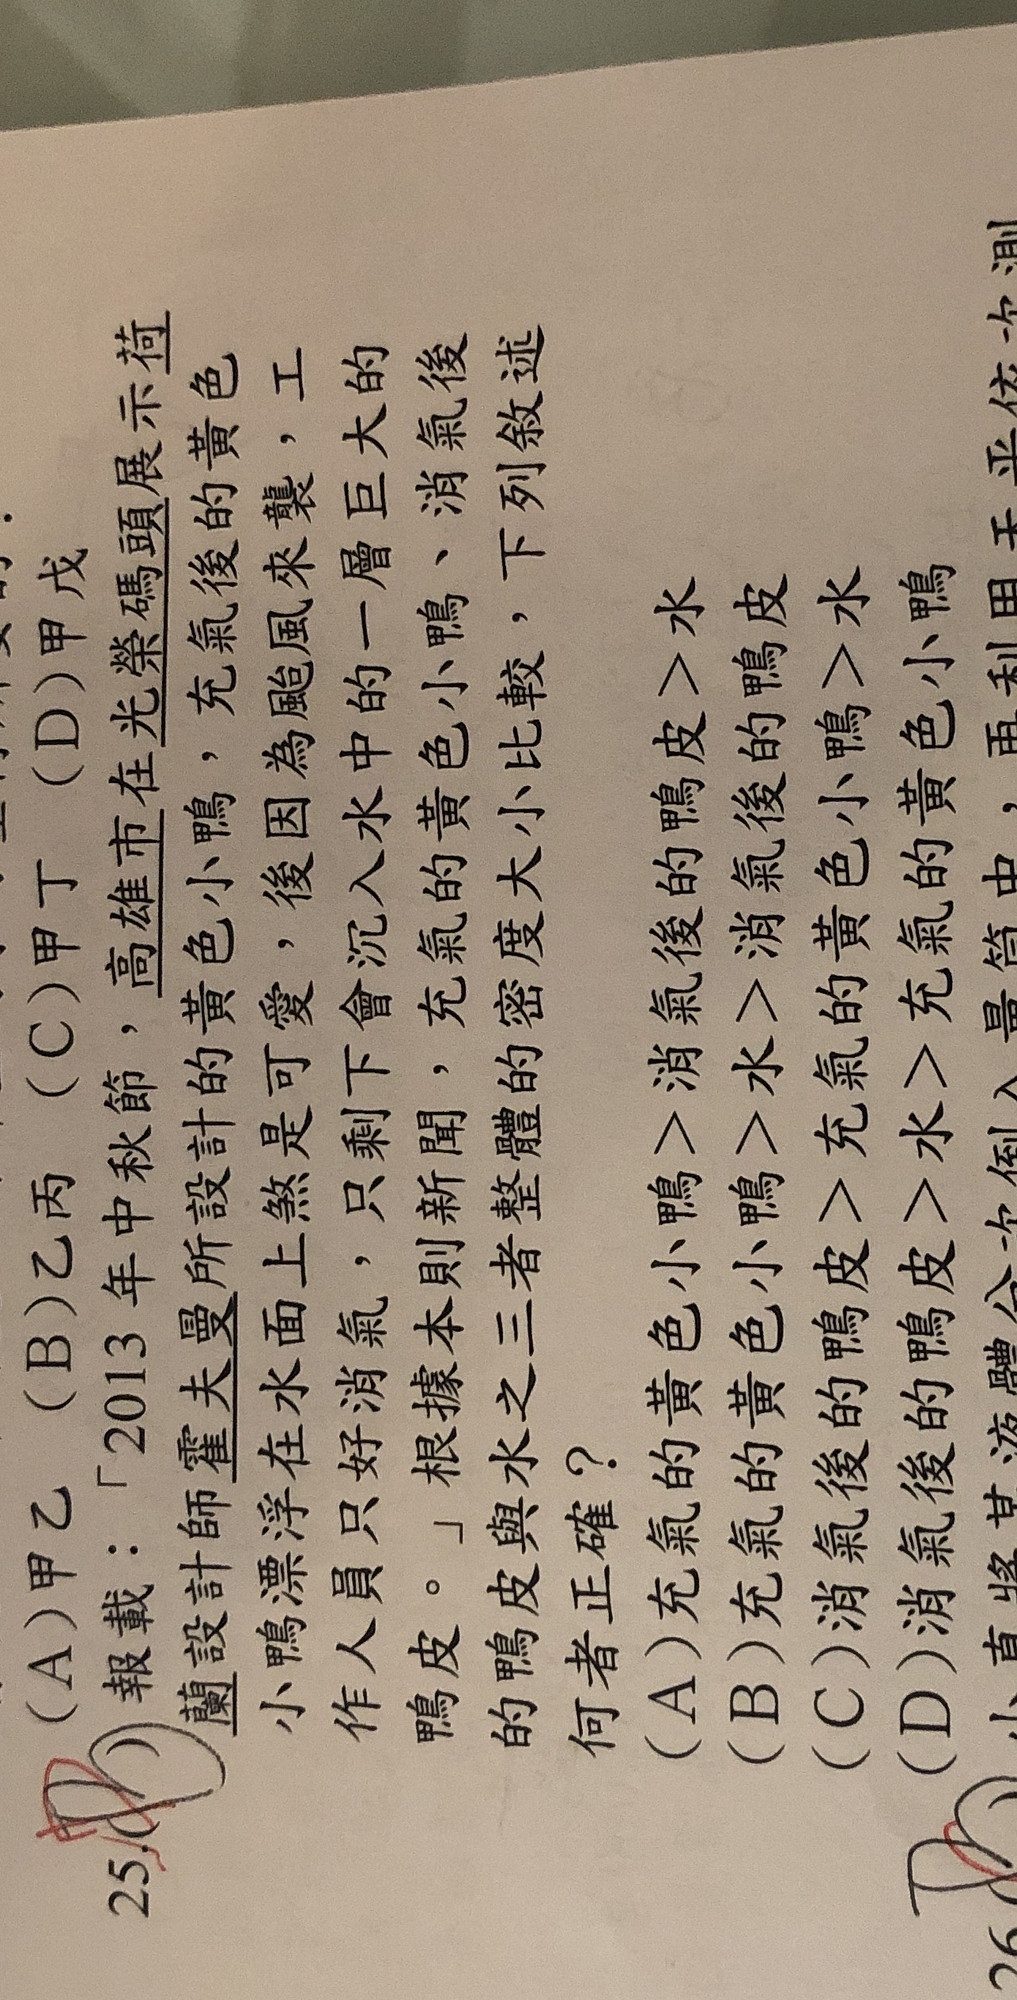 (A)甲乙 (B)乙丙 (C)甲丁 (D)甲戊
25.( )報載：「2013 年中秋節，高雄市在光榮碼頭展示荷
蘭設計師霍夫曼所設計的黃色小鴨，充氣後的黃色
小鴨漂浮在水面上煞是可愛，後因為颱風來襲，工
作人員只好消氣，只剩下會沉入水中的一層巨大的
鴨皮。」根據本則新聞，充氣的黃色小鴨、消氣後
的鴨皮與水之三者整體的密度大小比較，下列敘述
何者正確？
(A)充氣的黃色小鴨＞消氣後的鴨皮＞水
(B)充氣的黃色小鴨＞水＞消氣後的鴨皮
(C)消氣後的鴨皮＞充氣的黃色小鴨＞水
(D)消氣後的鴨皮＞水＞充氣的黃色小鴨
26.( )小真將某液體分次倒入量筒中，再利用天平依次測